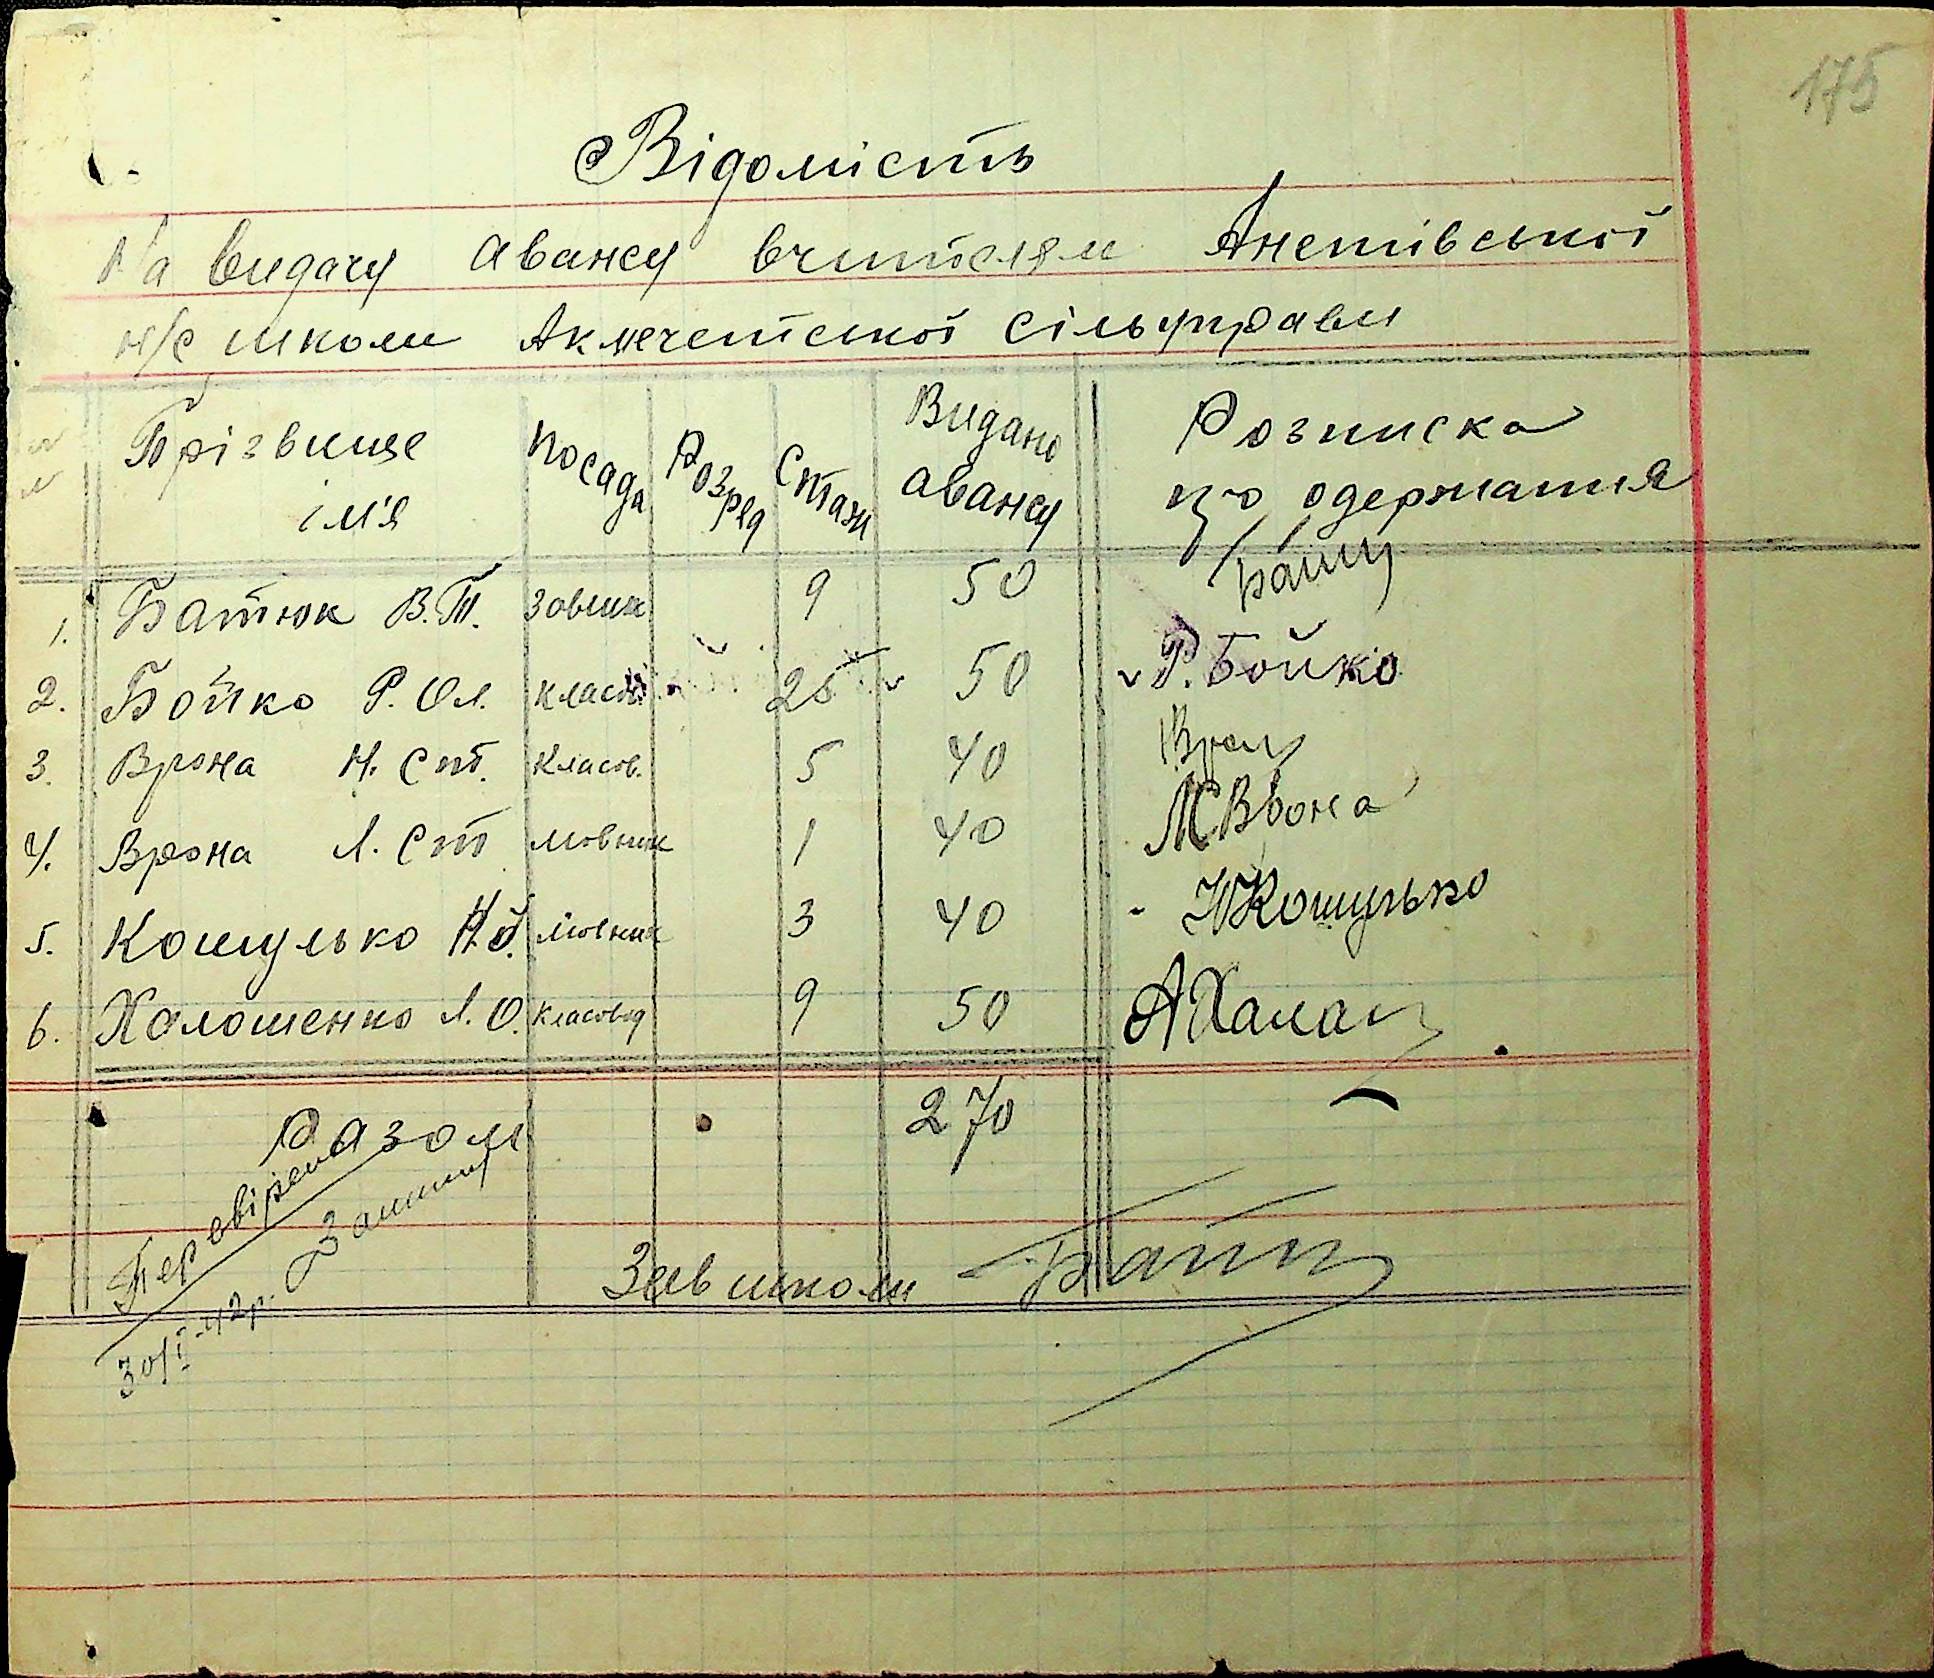 175
Відомість
На видачу авансу вчителям Анетівської
н/с школи Акмечетської сільуправи
Прізвище ім'я Посада Розряд Стаж Видано авансу Розписка про одержання
1. Батюк В.Т. Завшк 9 50 Батю
2. Бойко Р. Ол. класов. 25 50 Р. Бойко
3. Врона Н. Ст. Класов. 5 40 Врон
4. Врона Л. Ст мовник 1 40 Врона
5. Кошулько Н.Й. мовник 3 40 НКошулько
6. Холошенко Л. О. Класовод 9 50 АХалаш
Разом 270
Перевірен
30/I-42р.
Зав школи Батю